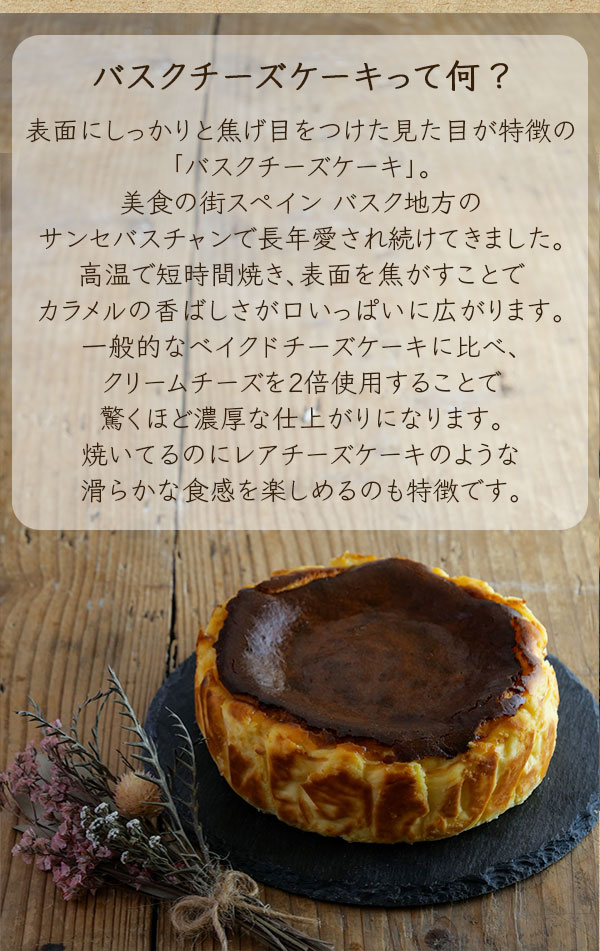 バスクチーズケーキって何？
表面にしっかりと焦げ目をつけた見た目が特徴の
「バスクチーズケーキ」。
美食の街スペイン バスク地方の
サンセバスチャンで長年愛され続けてきました。
高温で短時間焼き、表面を焦がすことで
カラメルの香ばしさが口いっぱいに広がります。
一般的なベイクドチーズケーキに比べ、
クリームチーズを2倍使用することで
驚くほど濃厚な仕上がりになります。
焼いてるのにレアチーズケーキのような
滑らかな食感を楽しめるのも特徴です。